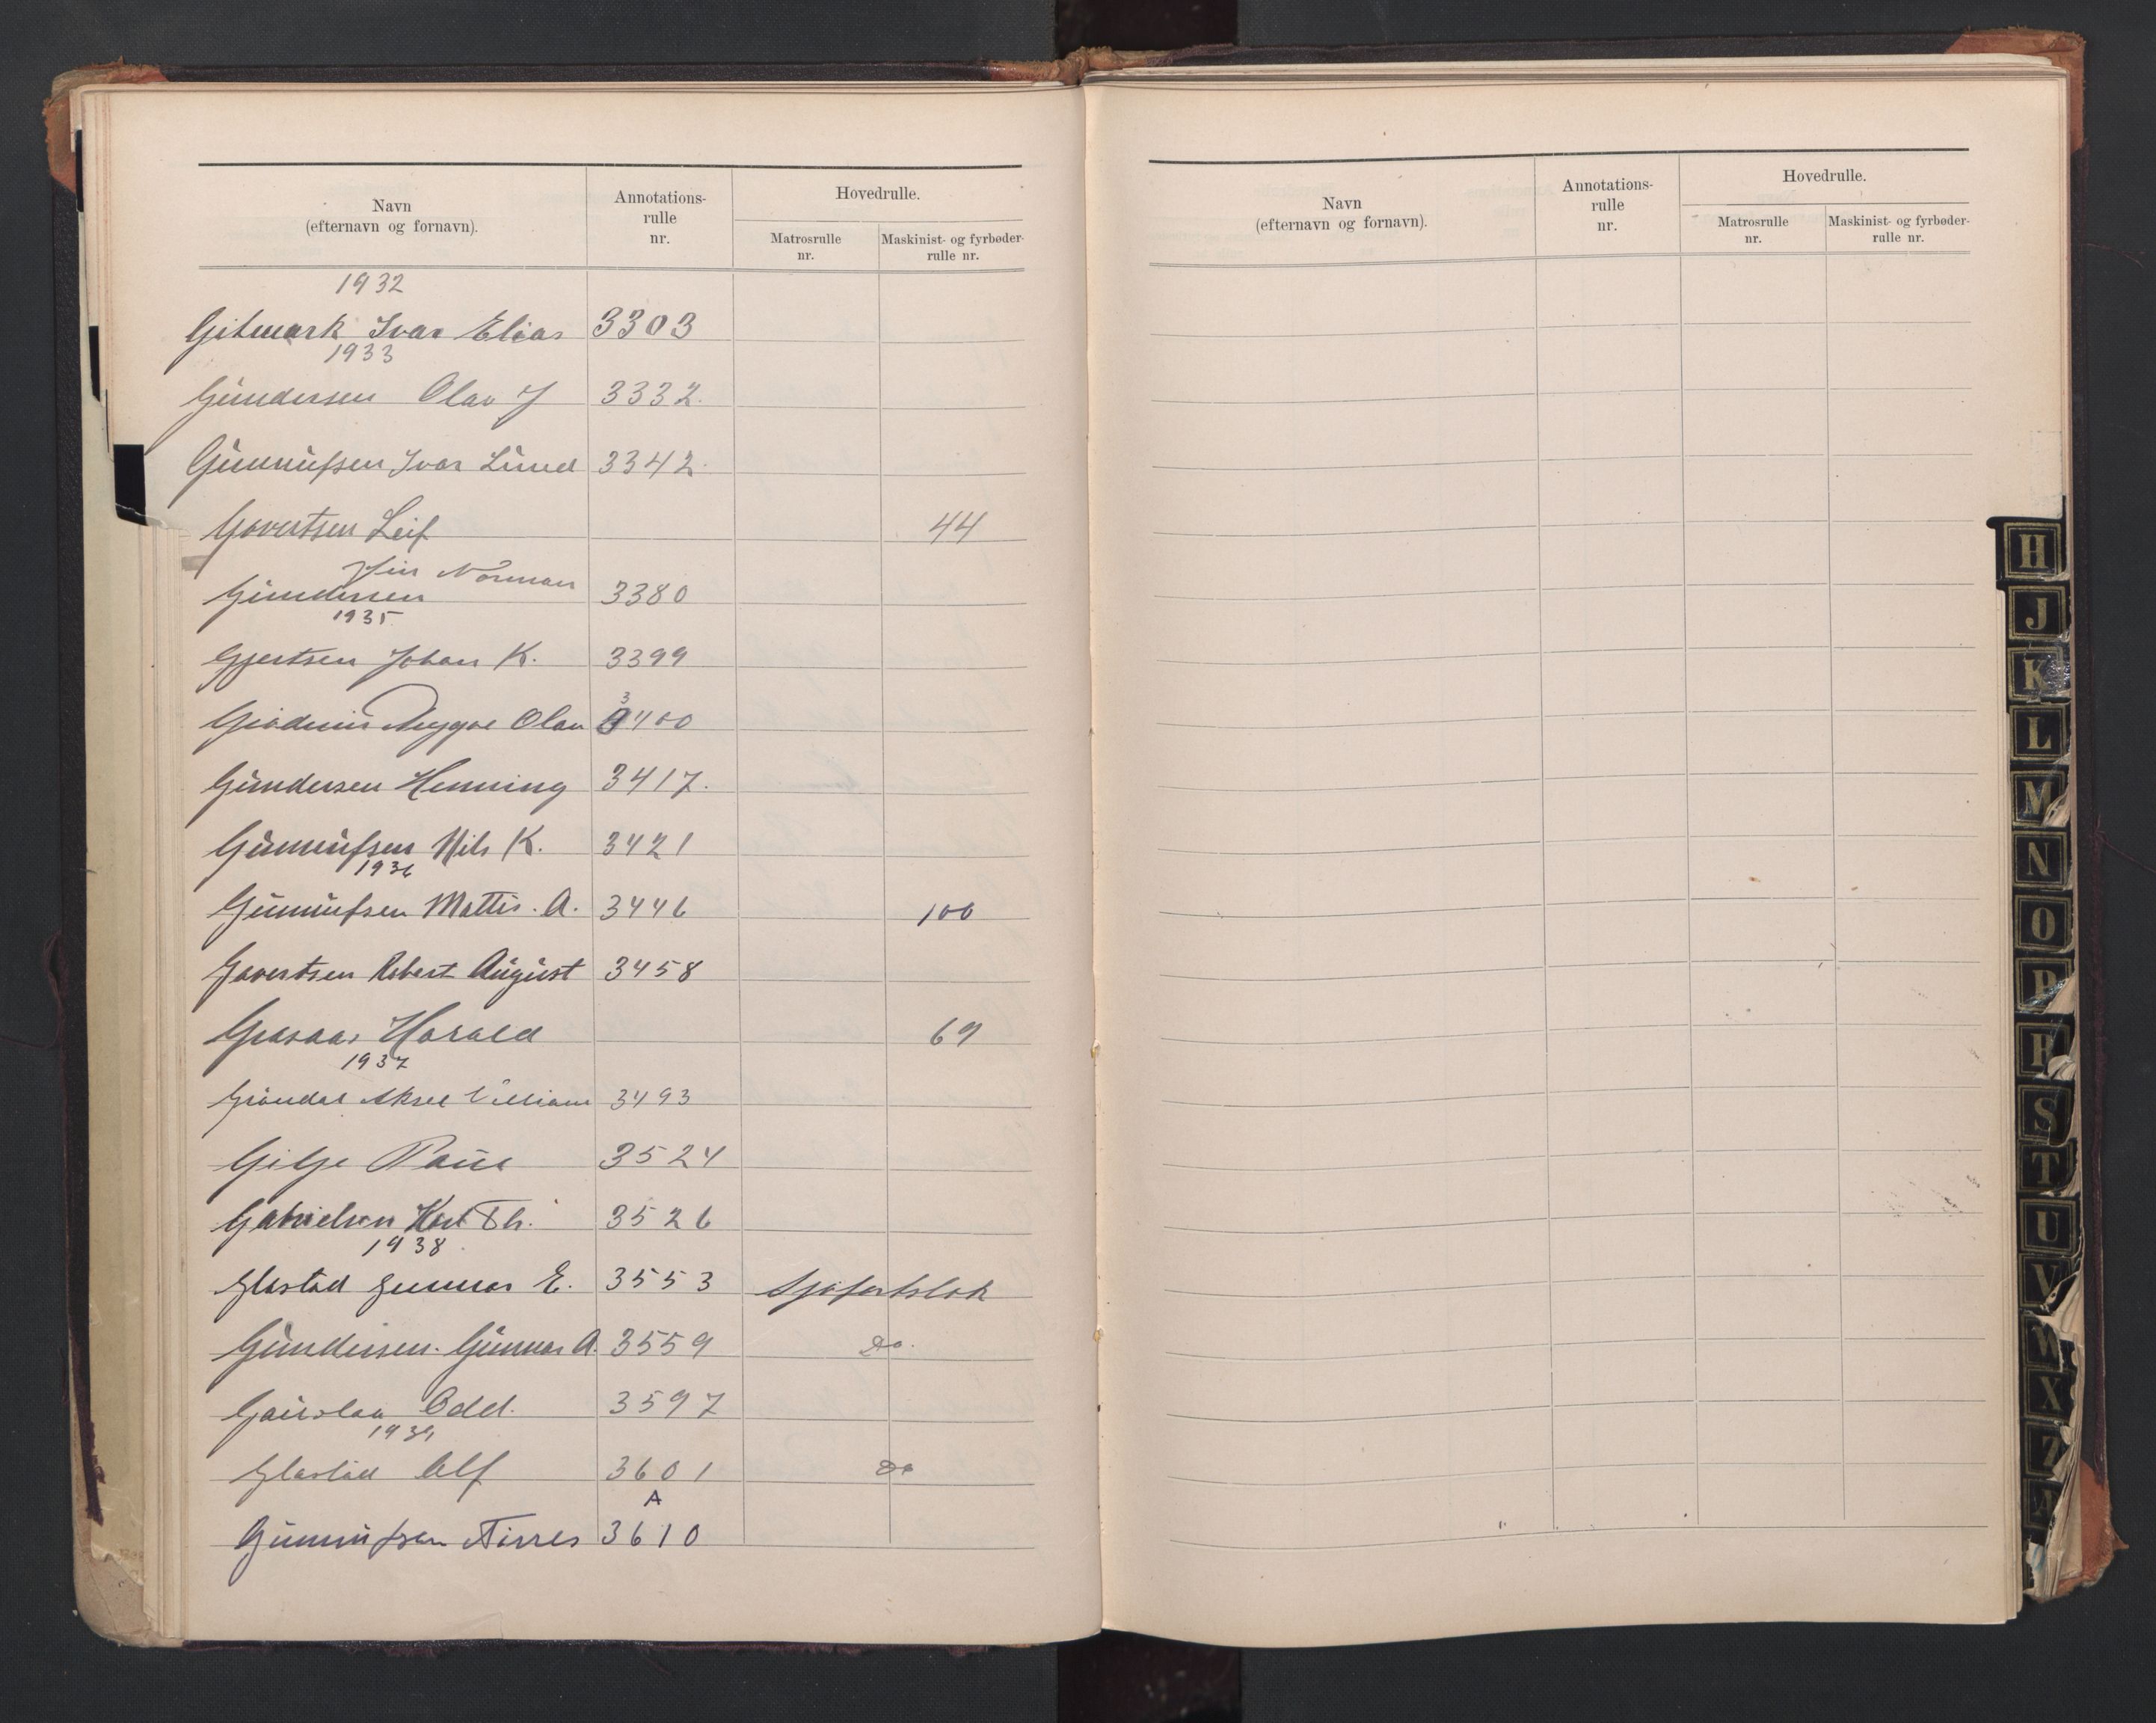 Navn
(efternavn og fornavn).
Annotations-
rulle
nr.
Hovedrulle.
Matrosrulle
nr.
Maskinist- og fyrbøder-
rulle nr.
1932
Gitmark Ivar Elias 3303
1933
Gundersen Olav J 3332.
Gunnufsen Ivar Lund 3342.
Govertsen Leif 44
Finn Norman
Gundersen 3380
1935
Gjertsen Johan K. 3399
Trygve Olav 3400
Gundersen Henning 3417.
Gunnufsen Nils K. 3421
1936
Gunnufsen Mattis. A. 3446 100
Govertsen Robert August 3458
Harald 69
1937
Grøndal Aksel William 3493
Gilje Paul 3524
Gabrielsen Karl Th. 3526
1938
Glastad Gunnar E. 3553 Sjøfartslok
Gundersen. Gunnar A. 3559 Do.
Odd. 3597
1939
Glastad Alf 3601 Do
A
Gunnufsen Tørres 3610
Navn
(efternavn og fornavn).
Annotations-
rulle
nr.
Hovedrulle.
Matrosrulle
nr.
Maskinist- og fyrbøder-
rulle nr.
H
J
K
L
M
N
O
P
R
S
T
U
V
W
X
Z